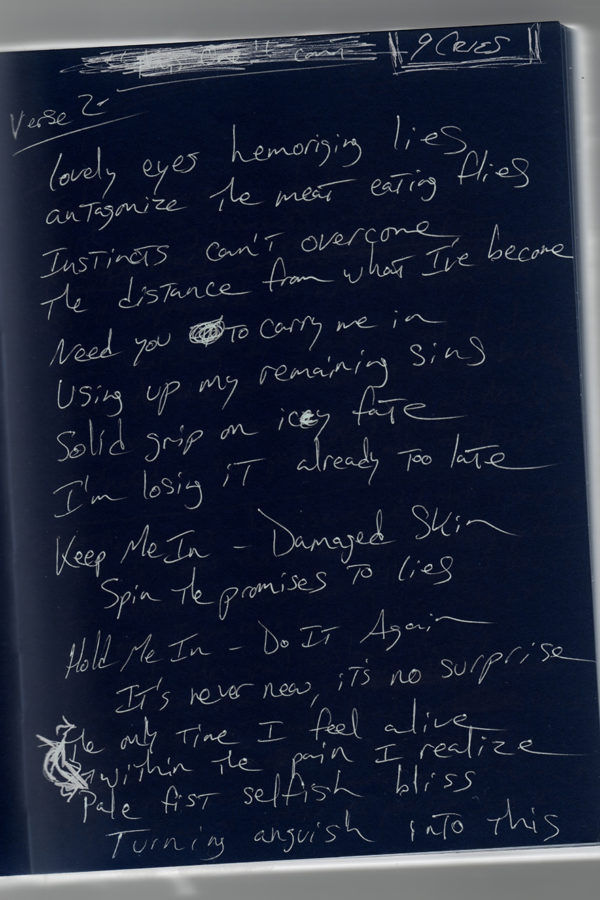 9 Cries
Verse 2-
lovely eyes hemoriging lies
antagonize the meat eating flies
Instincts can't overcome
the distance from what I've become
Need you to carry me in
Using up my remaining sins
Solid grip on icy fate
I'm losig iT already too late
Keep Me In - Damaged Skin
Spin the promises to lies
Hold Me In - Do It Again
It's never new, it's no surprise
the only time I feel alive
within the pain I realize
Pale fist selfish bliss
Turning anguish into this